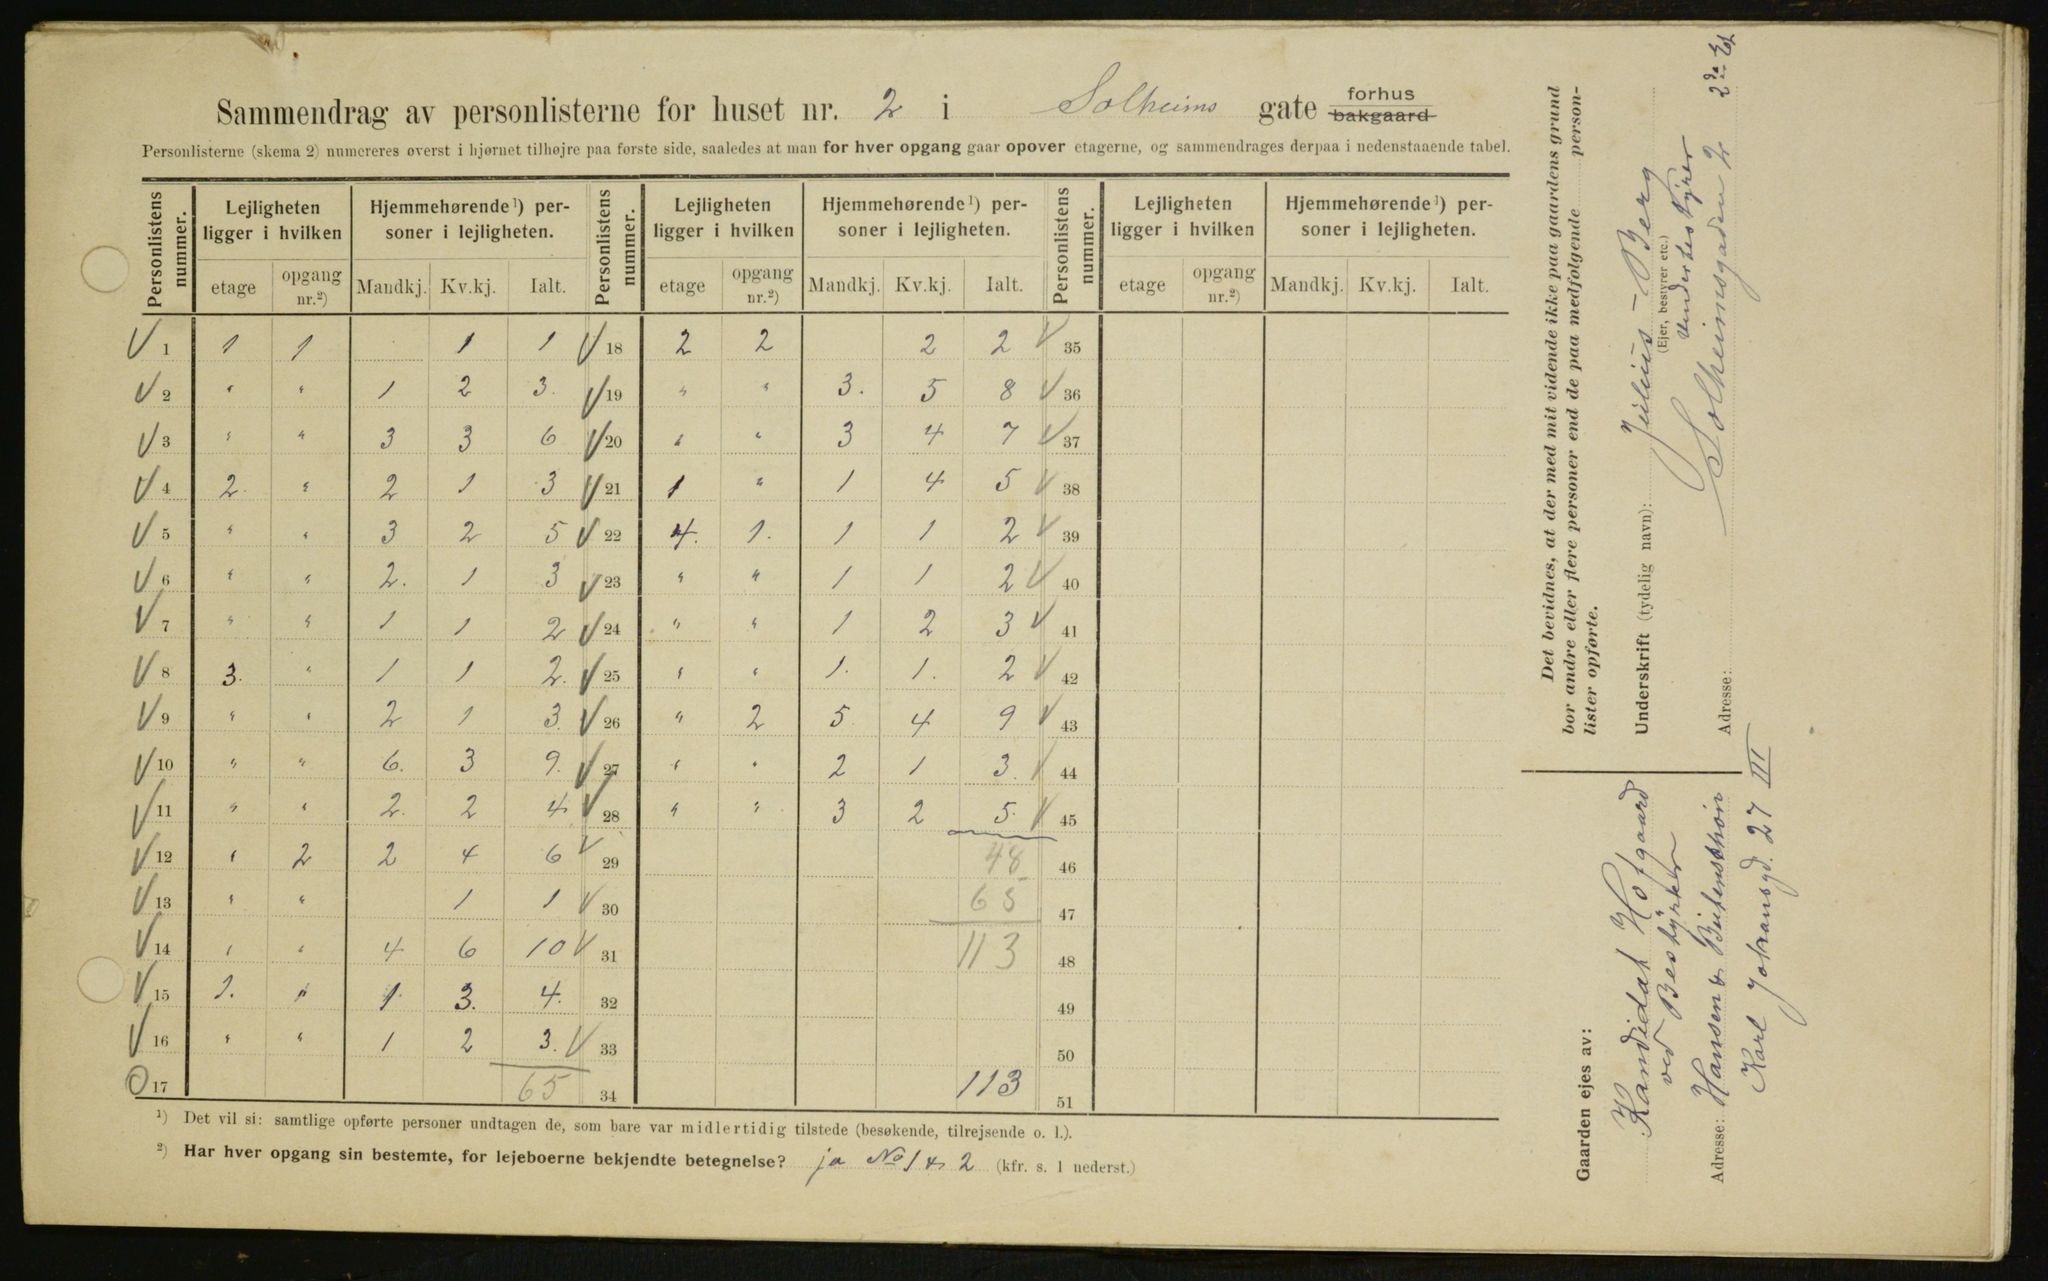 Sammendrag av personlisterne for huset nr. 2 i Solheims gate forhus bakgaard
Personlisterne (skema 2) numereres øverst i hjørnet tilhøjre paa første side, saaledes at man for hver opgang gaar opover etagerne, og sammendrages derpaa i nedenstaaende tabel.
Personlistens nummer. Lejligheten ligger i hvilken Hjemmehørende ¹) personer i lejligheten. Personlistens nummer. Lejligheten ligger i hvilken Hjemmehørende ¹) personer i lejligheten. Personlistens nummer. Lejligheten ligger i hvilken Hjemmehørende ¹) personer i lejligheten.
etage opgang nr.²) Mandkj. Kv.kj. Ialt. etage opgang nr.²) Mandkj. Kv.kj. Ialt. etage opgang nr.²) Mandkj. Kv.kj. Ialt.
√ 1 1 1 1 1 √ 18 2 2 2 2 √ 35
√ 2 " " 1 2 3. √ 19 " " 3. 5 8 √ 36
√ 3 " " 3 3 6 √ 20 " " 3 4 7 √ 37
√ 4 2. " 2 1 3 √ 21 1 " 1 4 5 √ 38
√ 5 " " 3 2 5 √ 22 4. 1. 1 1 2 √ 39
√ 6 " " 2. 1 3 √ 23 " " 1 1 2 √ 40
√ 7 " " 1 1 2 √ 24 " " 1 2 3 √ 41
√ 8 3. " 1 1 2. √ 25 " " 1. 1. 2 √ 42
√ 9 " " 2 1 3. √ 26 " 2 5 4 9 √ 43
√ 10 " " 6. 3 9. √ 27 " " 2 1 3. √ 44
√ 11 " " 2. 2 4 √ 28 " " 3 2 5. √ 45
√ 12 " 2 2 4 6 √ 29 48 46
√ 13 " " 1 1 √ 30 65 47
√ 14 " " 4 6 10 √ 31 113 48
√ 15 1. " 1. 3. 4. 32 49
√ 16 " " 1 2 3. √ 33 50
O 17 65 34 113 51
¹) Det vil si: samtlige opførte personer undtagen de, som bare var midlertidig tilstede (besøkende, tilrejsende o. l.).
²) Har hver opgang sin bestemte, for lejeboerne bekjendte betegnelse? ja No 1 & 2 (kfr. s. 1 nederst.)
Det bevidnes, at der med mit vidende ikke paa gaardens grund
bor andre eller flere personer end de paa medfølgende person-
lister opførte.
Underskrift (tydelig navn): Julius Berg
(Ejer, bestyrer etc.)
Underbestyrer
Adresse: Solheimsgaden 2 2da Etg
Gaarden ejes av:
Kandidat Hofgaard
ved Bestyrker
Adresse: Hansen &
Karl Johansgd. 27 III